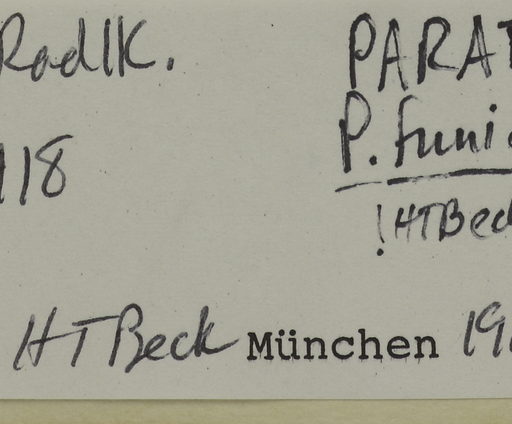 Radlk. PARAT
118 P. funi
!HTBeck
HT Beck München 19